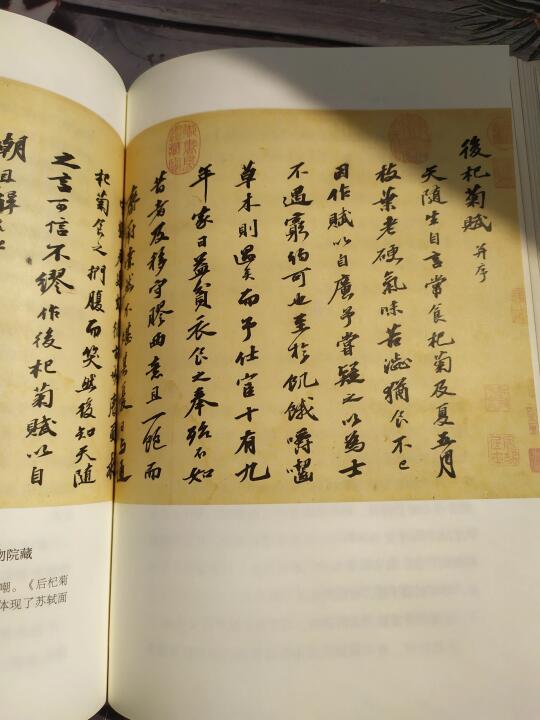 後杞菊賦 并序
天隨生自言常食杞菊及夏五月
枝葉老硬氣味苦澁猶食不已
因作賦以自廣予嘗疑之以為士
不遇窮約可也至於飢餓嚼齧
草木則過矣而予仕宦十有九
年家日益貧衣食之奉殆不如
昔者及移守膠西意且一飽而
不堪其憂日與通
杞菊食之捫腹而笑然後知天隨
之言可信不繆作後杞菊賦以自
嘲且解
物院藏
嘲。《后杞菊
体现了苏轼面